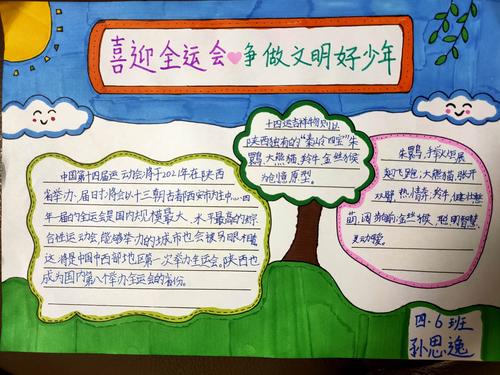 喜迎全运会争做文明好少年
中国第十四届运动会将于2021年在陕西
省举办,届时将会以十三朝古都西安市为主中心.四
年一届的全运会是国内规模最大、水平最高的综
合性运动会,能够举办的城市也会被另眼相看
这将是中国中西部地区第一次举办全运会。陕西也
成为国内第八个举办全运会的省份。
十四运吉祥物则以
陕西独有的"秦岭四宝"朱
鹮、大熊猫、羚牛、金丝猴
为创意原型。
朱鹮,手持火炬展
翅飞跑,大熊猫,张开
双臂,热情奔,羚牛,健壮憨
萌,阔步向前,金丝猴,聪明智慧,
灵动可爱。
四·6班
孙思逸